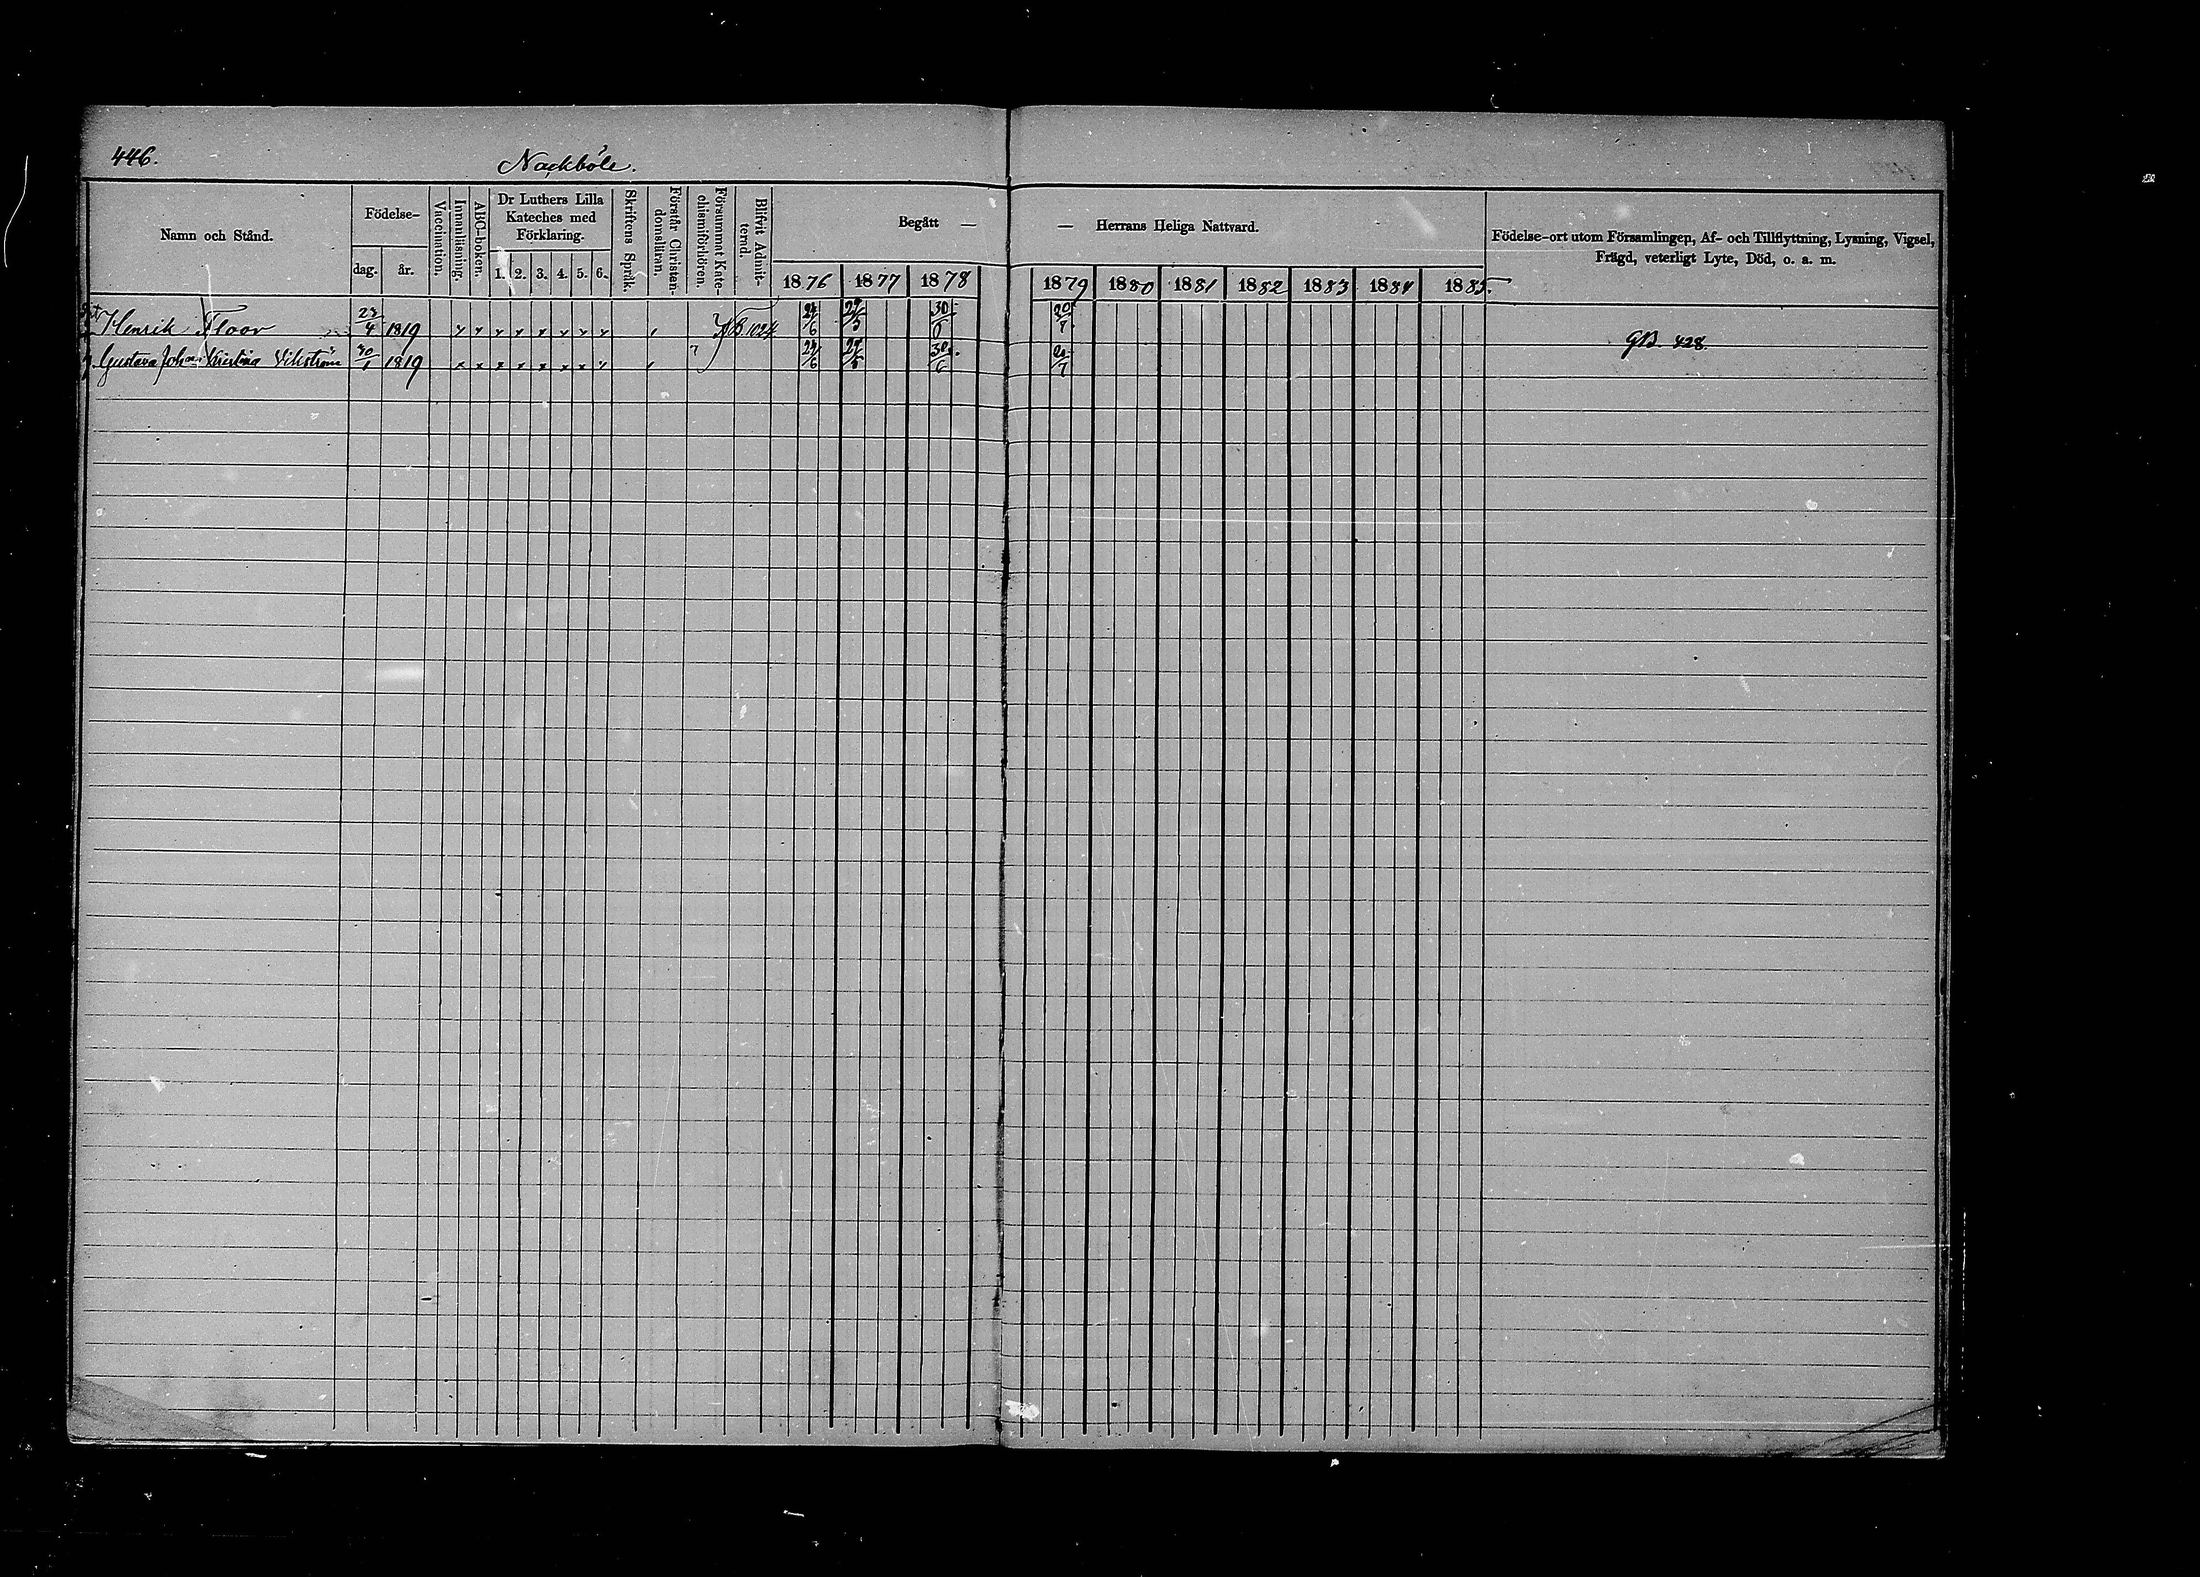 446.
Nackböle.
Namn och Stånd.
Födelse-
dag. år.
Vaccination.
Innanläsning.
ABC-boken.
Dr Luthers Lilla
Kateches med
Förklaring.
1. 2. 3. 4. 5. 6.
Skriftens Språk.
Förstår Christen-
domsläran.
Försummat Kate-
chismiförhören.
Blifvit Admit-
terad.
Begått —
— Herrans Heliga Nattvard.
1876 1877 1878 1879 1880 1881 1882 1883 1884 1885.
Födelse-ort utom Församlingen, Af- och Tillflyttning, Lysning, Vigsel,
Frägd, veterligt Lyte, Död, o. a. m.
Henrik Floor 23/4 1819 NB 1024 24/6 27/5 30/6 20/7 GB. 428.
Gustava Joha Kristina Vikström 30/1 1819 24/6 27/5 30/6 20/7